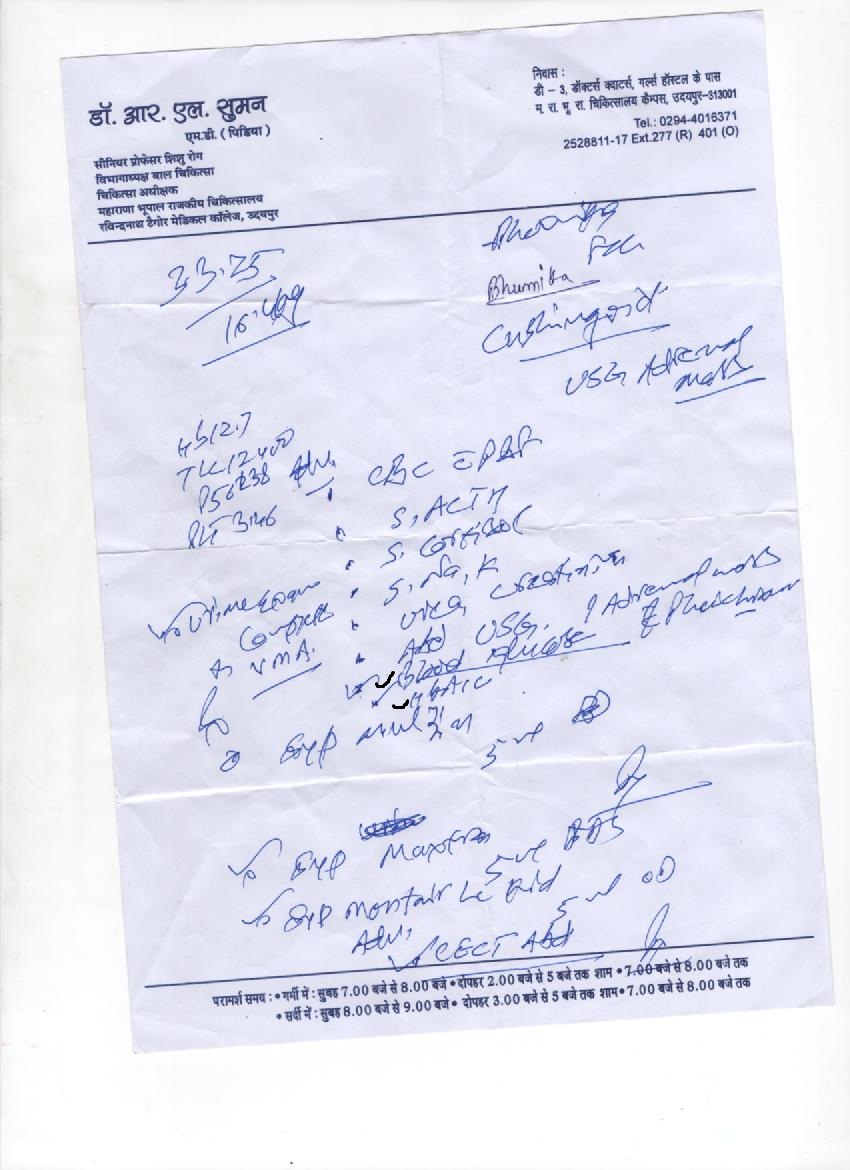 डॉ. आर. एल. सुमन
एम.डी. ( पिडिया )
सीनियर प्रोफेसर शिशु रोग
विभागाध्यक्ष बाल चिकित्सा
चिकित्सा अधीक्षक
महाराणा भूपाल राजकीय चिकित्सालय
रविन्द्रनाथ टैगोर मेडिकल कॉलेज, उदयपुर
निवास :
डी – 3, डॉक्टर्स क्वाटर्स, गर्ल्स हॉस्टल के पास
म. रा. भू. रा. चिकित्सालय कैम्पस, उदयपुर–313001
Tel.: 0294-4016371
2528811-17 Ext.277 (R) 401 (O)
3.3.25
Bhumika
Cushingoid
USG Adrenal
mass
Hb 12.7
TLC 12400
Adv.
CBC
S. ACTH
S. Cortisol
S. Na, K
Urea, Creatinine
Abd USG. ? Adrenal mass
Urine Exam
Complete
VMA.
Blood Glucose
HbA1c
Syp
5 ml
Syp Maxtra
5 ml
Syp Montair LC Kid
5 ml OD
Adv.
CECT Abd
परामर्श समय : • गर्मी में : सुबह 7.00 बजे से 8.00 बजे • दोपहर 2.00 बजे से 5 बजे तक शाम • 7.00 बजे से 8.00 बजे तक
• सर्दी में : सुबह 8.00 बजे से 9.00 बजे • दोपहर 3.00 बजे से 5 बजे तक शाम • 7.00 बजे से 8.00 बजे तक